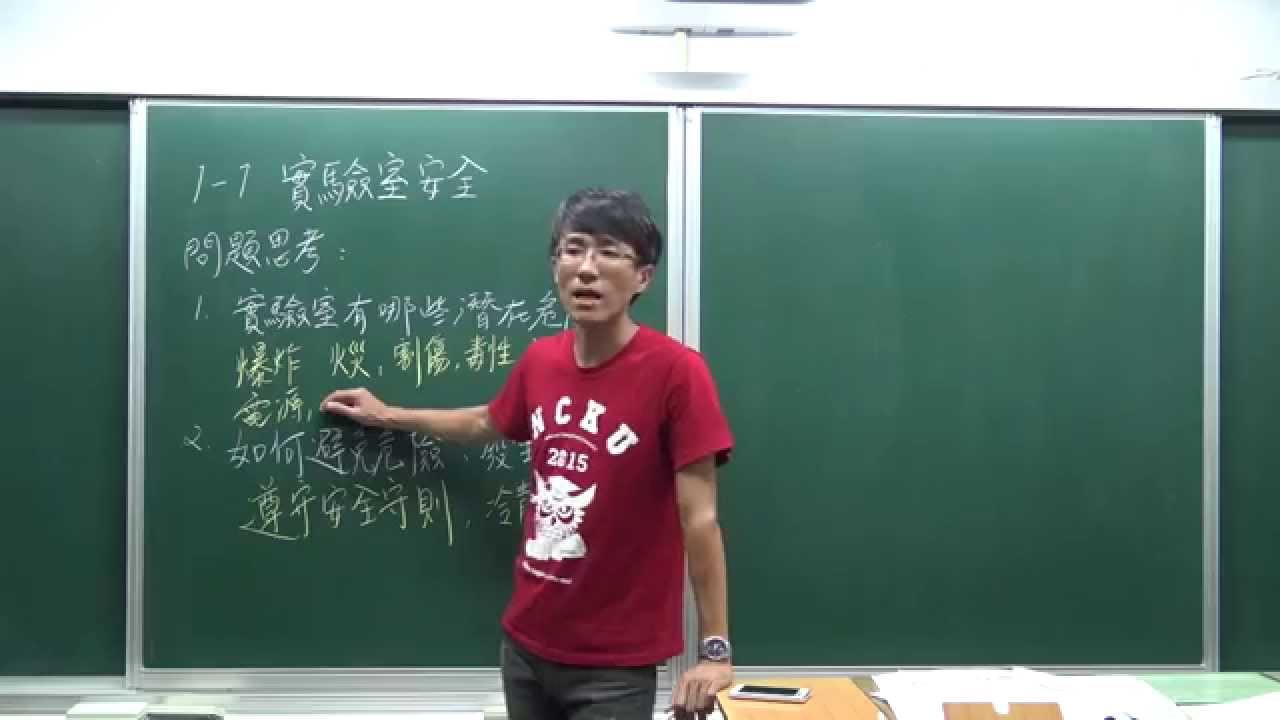 1-1 實驗室安全
問題思考：
1. 實驗室有哪些潛在危
爆炸 火災, 割傷, 毒性
電源,
2. 如何避免危險、發生
遵守安全守則, 冷靜
NCKU
2015